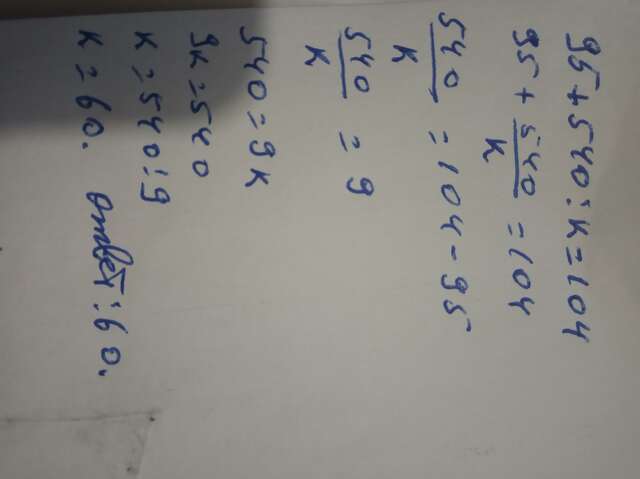 95+540:к=104
95+540/к=104
540/к=104-95
540/к=9
540=9к
9к=540
к=540:9
к=60. ответ:60.